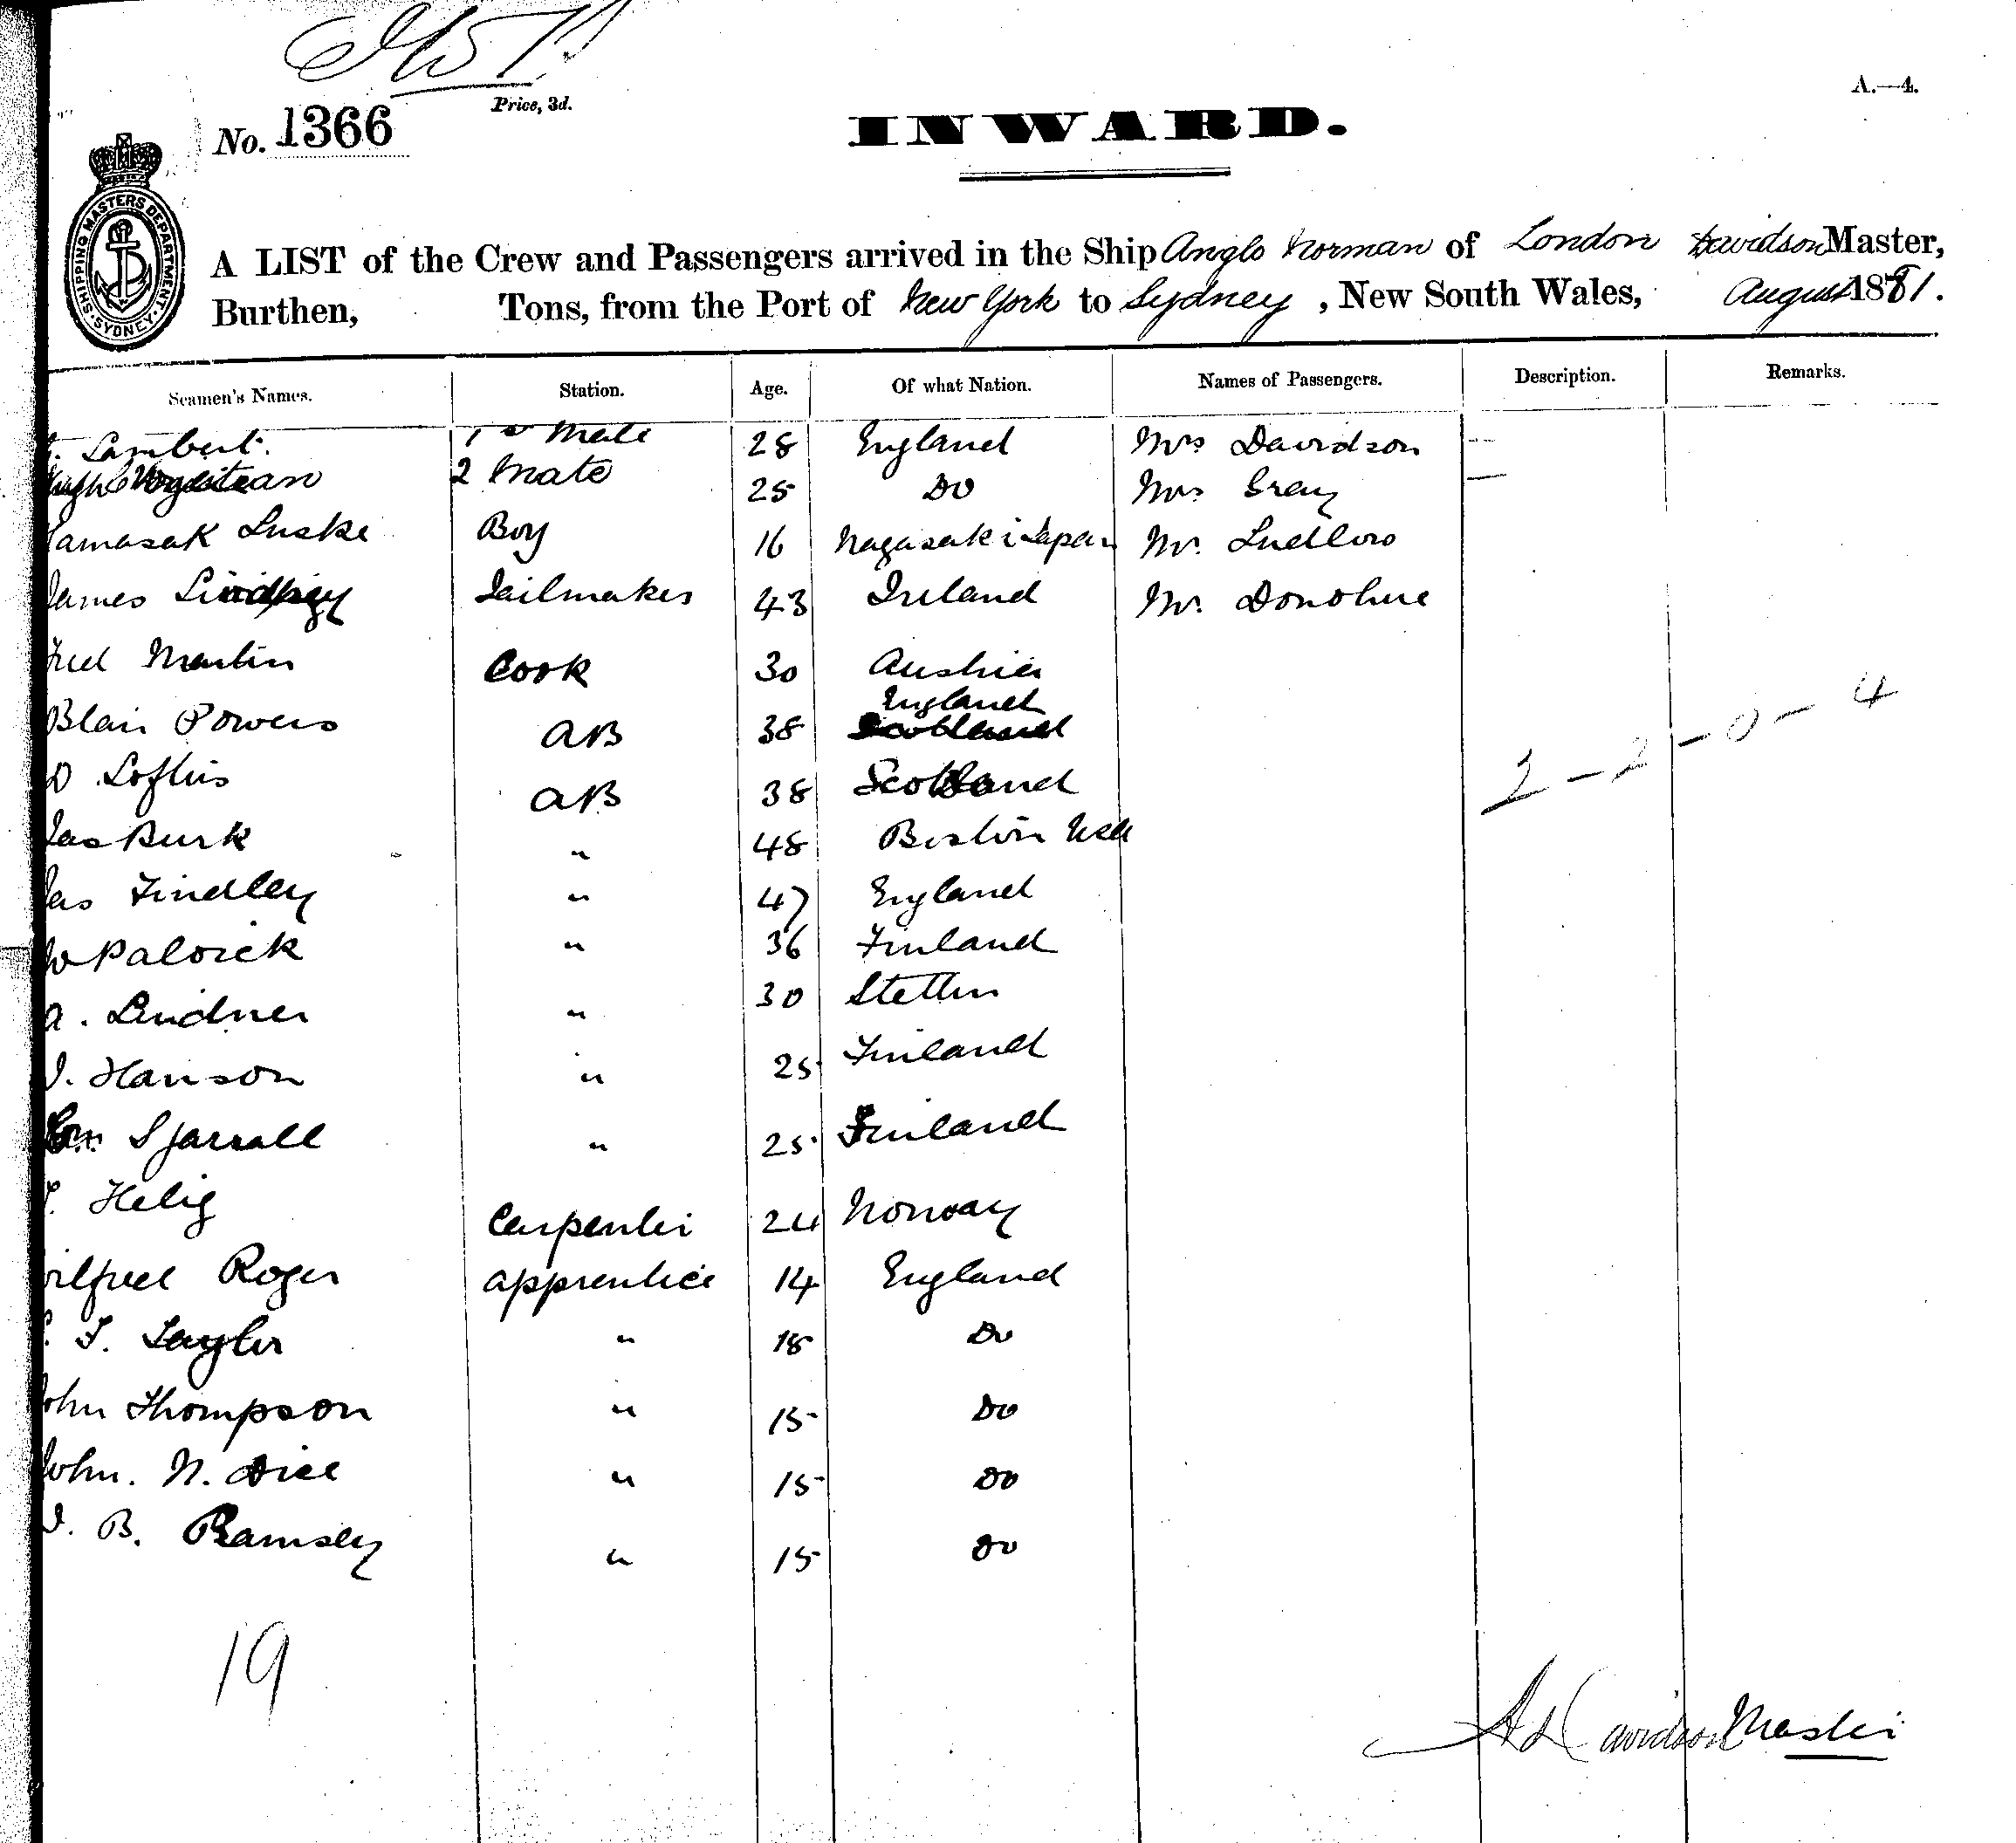 Price, 3d.
A.—4.
No. 1366
INWARD.
SHIPPING MASTERS DEPARTMENT. SYDNEY.
A LIST of the Crew and Passengers arrived in the Ship Anglo Norman of London Davidson Master,
Burthen, Tons, from the Port of New York to Sydney, New South Wales, August 1881.
Seamen's Names. Station. Age. Of what Nation. Names of Passengers. Description. Remarks.
Lambert. 1st Mate 28 England Mrs Davidson
Hugh 2 Mate 25 Do Mrs Gray
Yamasak Luske Boy 16 Nagasaki Japan Mr. Ludlow
James Lindsey Sailmaker 43 Ireland Mr. Donohue
Fred Martin Cook 30 Austria
Blair Powers AB 38 England Scotland
D Loftus AB 38 Scotland
Jas Burk " 48 Boston USA
Jas Findley " 47 England
W Palorek " 36 Finland
A. Lindner " 30 Stettin
J. Hanson " 25 Finland
Sjarrall " 25 Finland
Helig Carpenter 24 Norway
Wilfred Roger Apprentice 14 England
T. Taylor " 18 Do
John Thompson " 15 Do
John. N. Dice " 15 Do
J. B. Ramsey " 15 Do
2 - 2 - 0 - 4
19
A Davidson Master